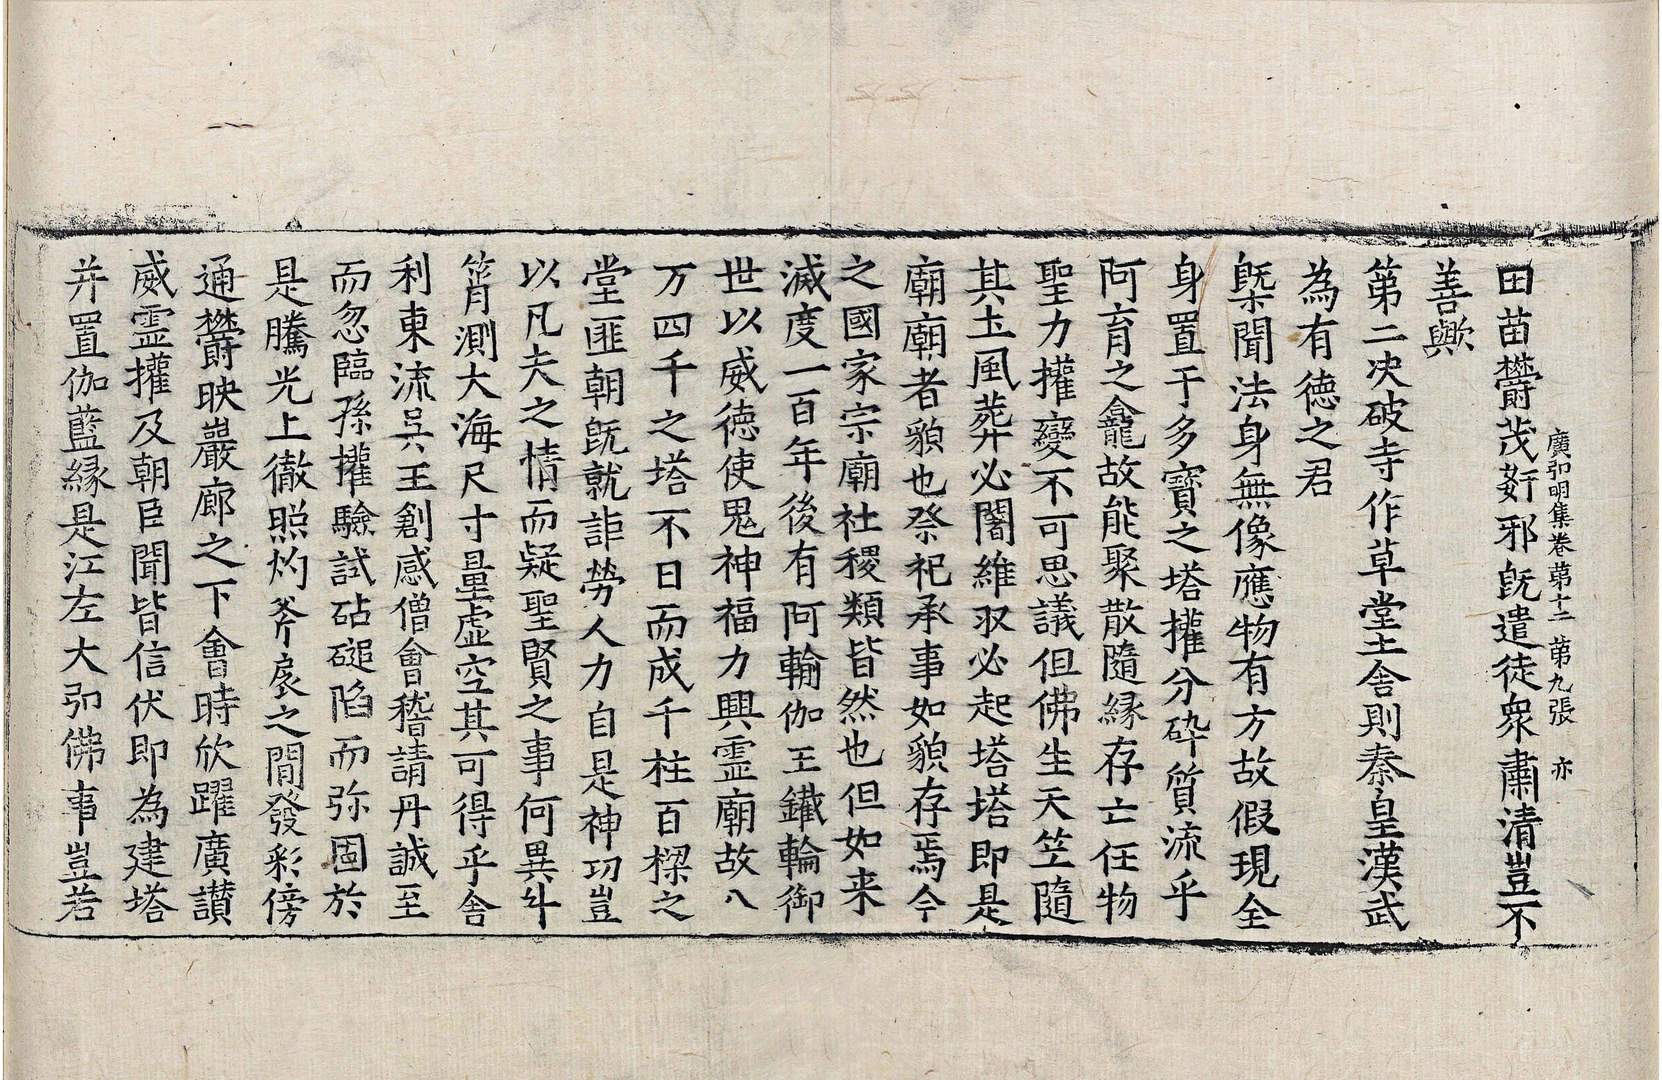 廣弘明集卷苐十二 苐九張 亦
田苗欝茂姧邪旣遣徒衆肅清豈不
善歟
苐二決破寺作草堂土舍則秦皇漢武
為有德之君
槩聞法身無像應物有方故假現全
身置于多寶之塔權分碎質流乎
阿育之龕故能聚散隨緣存亡任物
聖力權變不可思議但佛生天竺隨
其土風葬必闍維収必起塔塔即是
廟廟者貌也祭祀承事如貌存焉今
之國家宗廟社稷類皆然也但如来
滅度一百年後有阿輸伽王鐵輪御
世以威德使鬼神福力興霊廟故八
万四千之塔不日而成千柱百樑之
堂匪朝旣就詎勞人力自是神功豈
以凡夫之情而疑聖賢之事何異斗
筲測大海尺寸量虛空其可得乎舍
利東流吳王創感僧會稽請丹誠至
而忽臨孫權驗試砧磓陷而弥固於
是騰光上徹照灼斧扆之間發彩傍
通欝映巖廊之下會時欣躍廣讃
威霊權及朝臣聞皆信伏即為建塔
并置伽藍緣是江左大弘佛事豈若